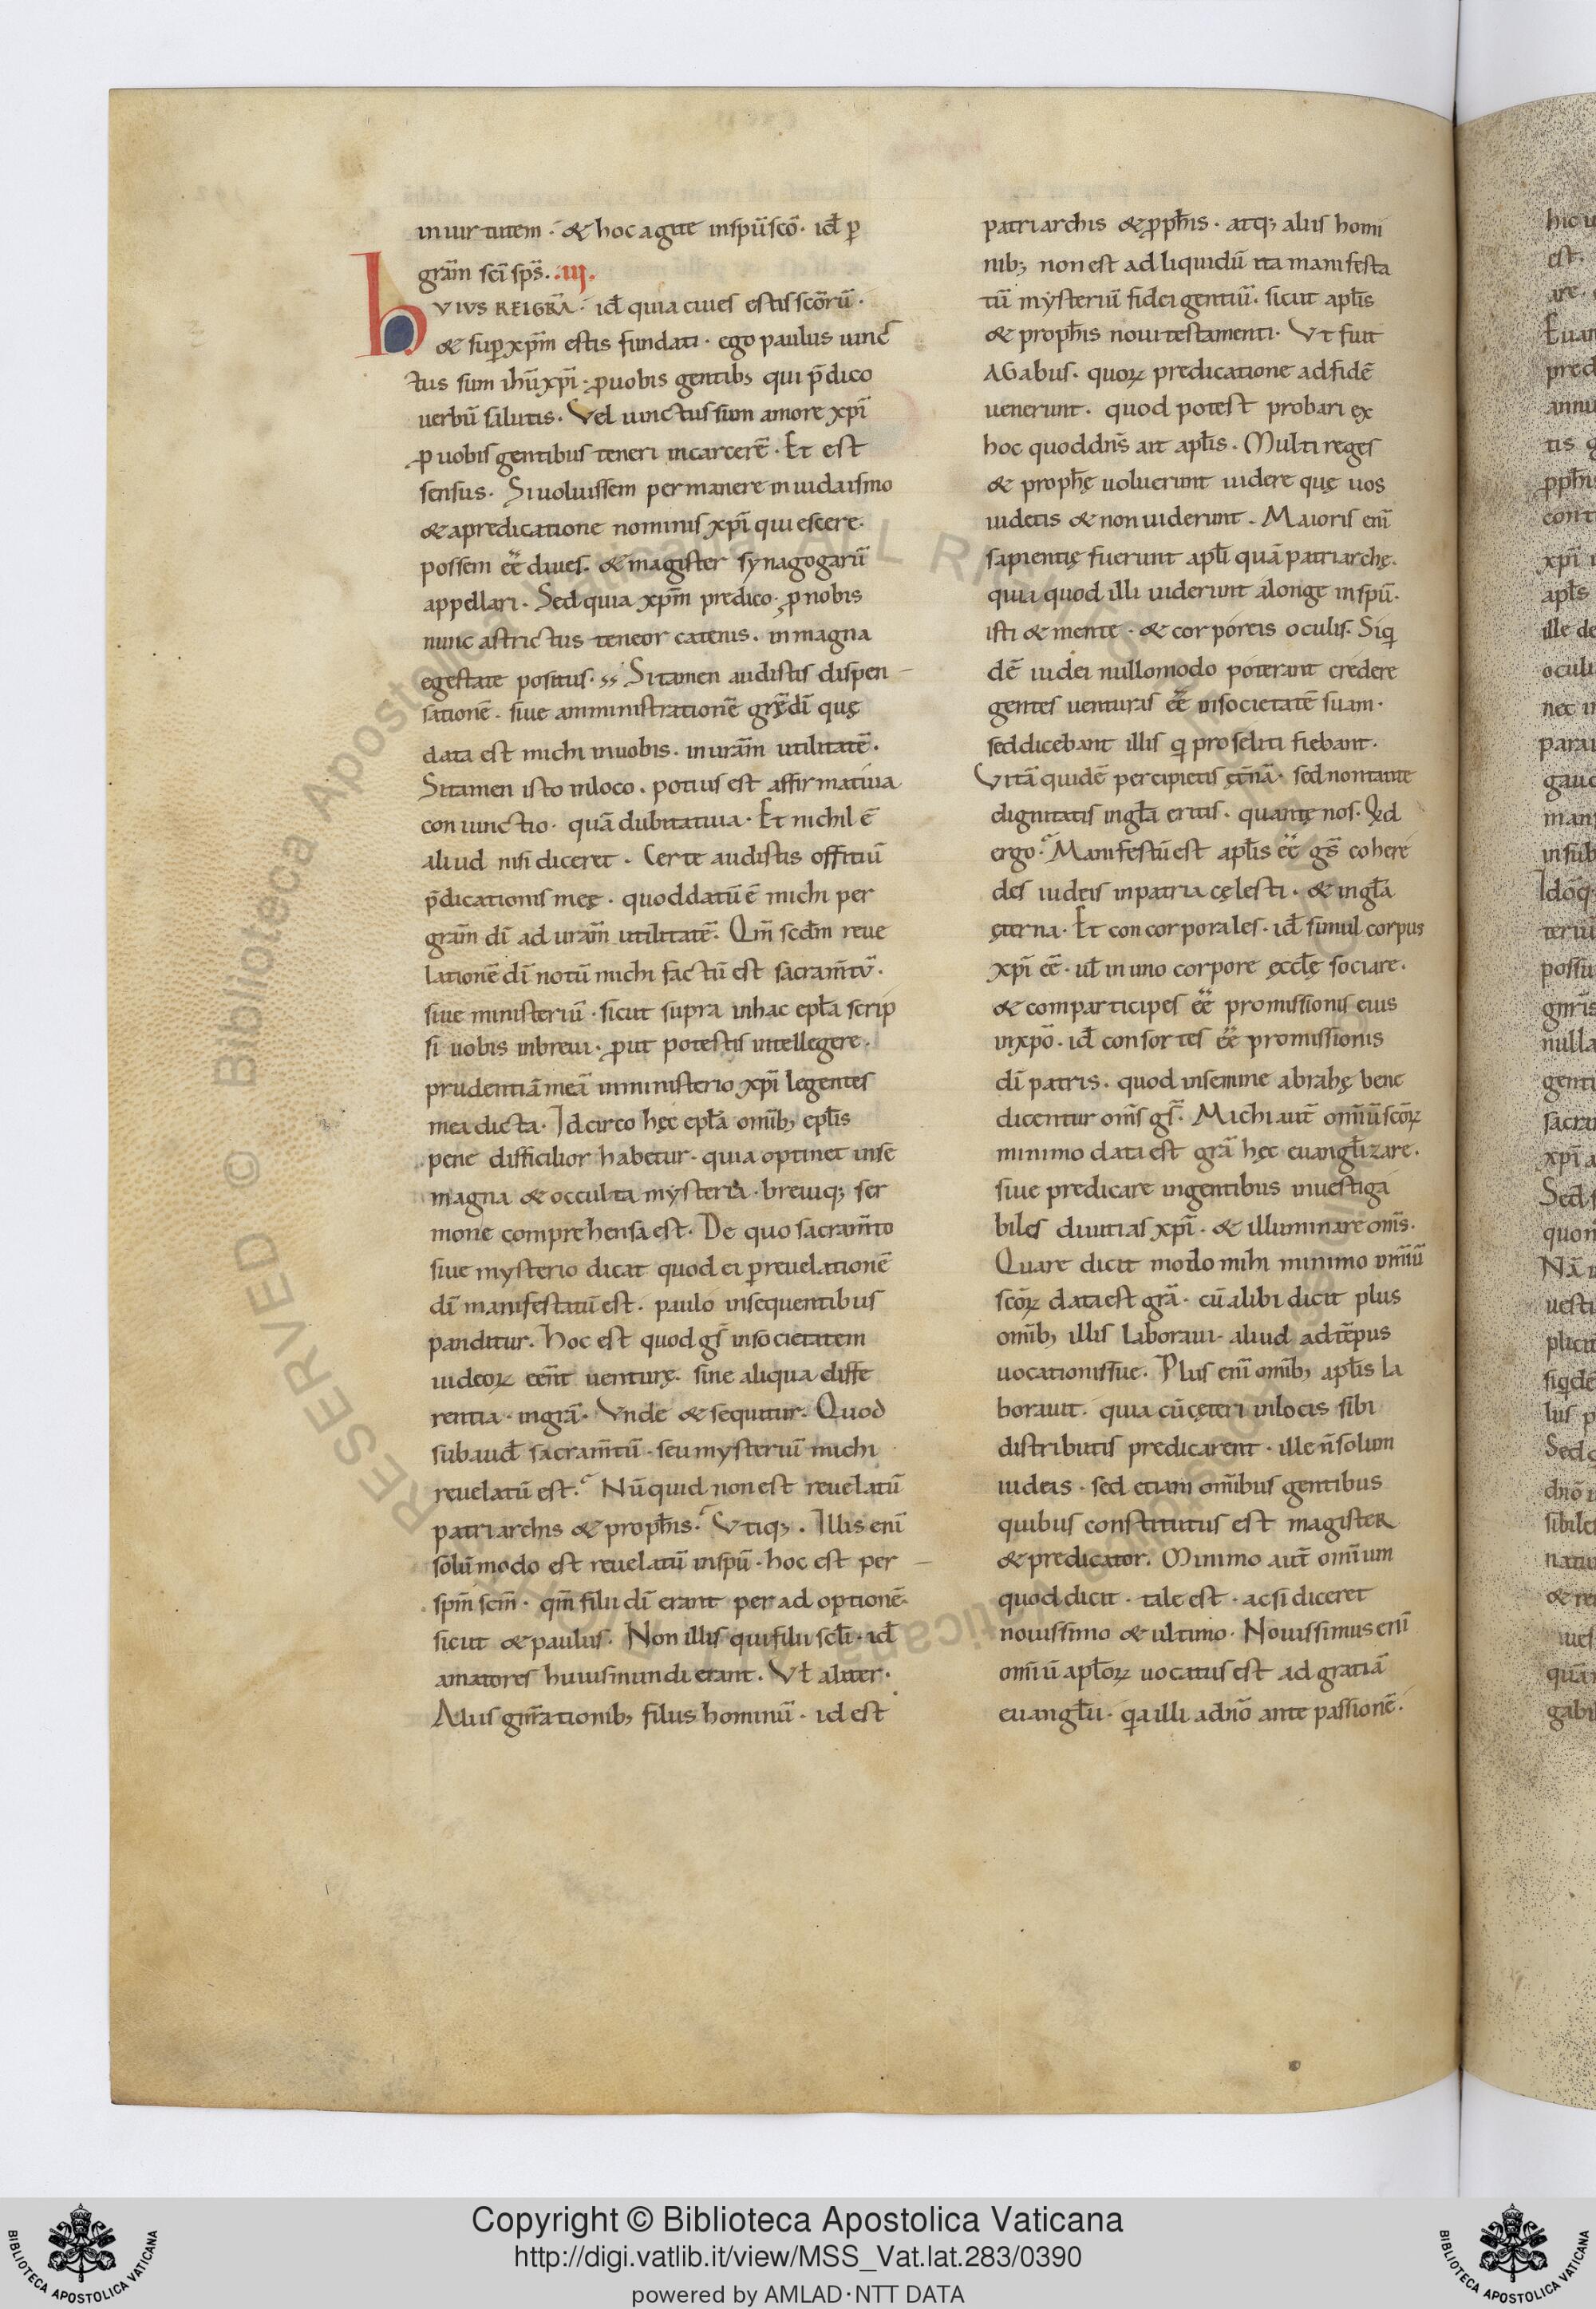 in uirtutem · & hoc agite in spū scō · id̄ ꝑ
gr̄am sc̄i sp̄s. .III.
hVIVS REI GR̄A · id̄ quia ciues estis sc̄orū ·
& suꝑ xp̄m estis fundati · ego paulus uinc
tus sum ih̄u xp̄i · ꝓ uobis gentib; qui p̄dico
uerbū salutis · Vel uinctus sum amore xp̄i
ꝓ uobis gentibus teneri in carcerē · Et est
sensus · Si uoluissem permanere in iudaismo
& a predicatione nominis xp̄i quiescere ·
possem eē diues · & magister synagogarū
appellari · Sed quia xp̄m predico · ꝓ nobis
nunc astrictus teneor catenis · in magna
egestate positus · Si tamen audistis dispen
sationē · siue amministrationē grę dī quę
data est michi in uobis · in urām utilitatē ·
Si tamen isto in loco · potius est affirmatiua
coniunctio · quā dubitatiua · Et nichil ē
aliud nisi diceret · Certe audistis offitiū
p̄dicationis meę · quod datū ē michi per
gr̄am dī ad urām utilitatē · Qm̄ scd̄m reue
lationē dī notū michi factū est sacram̄tū ·
siue ministeriū · sicut supra in hac ept̄a scrip
si uobis in breui · ꝓut potestis intellegere ·
prudentiā meā in ministerio xp̄i legentes
mea dicta · Idcirco hęc ept̄a om̄ib; ept̄is
pene difficilior habetur · quia optinet in se
magna & occulta mysteria · breuiq; ser
mone comprehensa est · De quo sacram̄to
siue mysterio dicat quod ei ꝑ reuelationē
dī manifestatū est · paulo in sequentibus
panditur · Hoc est quod gs̄ in societatem
iudeoꝝ een̄t uenturę · sine aliqua diffe
rentia · in gr̄a · Vnde & sequitur · Quod
subaud̄ sacram̄tū · seu mysteriū michi
reuelatū est · Nū quid non est reuelatū
patriarchis & proph̄is · Vtiq; · Illis enī
solū modo est reuelatū in spū · hoc est per
sp̄m sc̄m · qm̄ filii dī erant per adoptionē ·
sicut & paulus · Non illis qui filii scl̄i · id̄
amatores huius mundi erant · Vt̄ aliter ·
Aliis gn̄rationib; filius hominū · id est
patriarchis & ꝓph̄is · atq; aliis homi
nib; non est ad liquidū ita manifesta
tū mysteriū fidei gentiū · sicut apl̄is
& proph̄is noui testamenti · Vt fuit
AGabus · quoꝝ predicatione ad fidē
uenerunt · quod potest probari ex
hoc quod dn̄s ait apl̄is · Multi reges
& proph̄ę uoluerunt uidere quę uos
uidetis & non uiderunt · Maioris enī
sapientię fuerunt apl̄i quā patriarchę ·
quia quod illi uiderunt a longe in spū ·
isti & mente · & corporeis oculis · Siq
dē iudei nullo modo poterant credere
gentes uenturas eē in societatē suam ·
sed dicebant illis q proseliti fiebant ·
Vitā quidē percipietis ęt̄nā · sed non tante
dignitatis in gl̄a eritis · quantę nos · Qd
ergo · Manifestū est apl̄is eē gs̄ cohere
des iudeis in patria cęlesti · & in gl̄a
ęterna · Et concorporales · id̄ simul corpus
xp̄i eē · ul̄ in uno corpore ęccl̄ę sociare ·
& comparticipes eē promissionis eius
in xp̄o · id̄ consortes eē promissionis
dī patris · quod in semine abrahę bene
dicentur om̄s gs̄ · Michi aut̄ om̄iū sc̄oꝝ
minimo data est gr̄a hęc euangl̄izare ·
siue predicare in gentibus inuestiga
biles diuitias xp̄i · & illuminare om̄s ·
Quare dicit modo mihi minimo om̄iū
sc̄oꝝ data est gr̄a · cū alibi dicit plus
om̄ib; illis laboraui · aliud ad tēpus
uocationis sue · Plus enī om̄ib; apl̄is la
borauit · quia cū cęteri in locis sibi
distributis predicarent · ille n̄ solum
iudeis · sed etiam om̄ibus gentibus
quibus constitutus est magister
& predicator · Minimo aut̄ om̄ium
quod dicit · tale est · ac si diceret
nouissimo & ultimo · Nouissimus enī
om̄iū apl̄oꝝ uocatus est ad gratiā
euangl̄ii · qa illi a dn̄o ante passionē ·
Copyright © Biblioteca Apostolica Vaticana
http://digi.vatlib.it/view/MSS_Vat.lat.283/0390
powered by AMLAD·NTT DATA
BIBLIOTECA APOSTOLICA VATICANA
BIBLIOTECA APOSTOLICA VATICANA